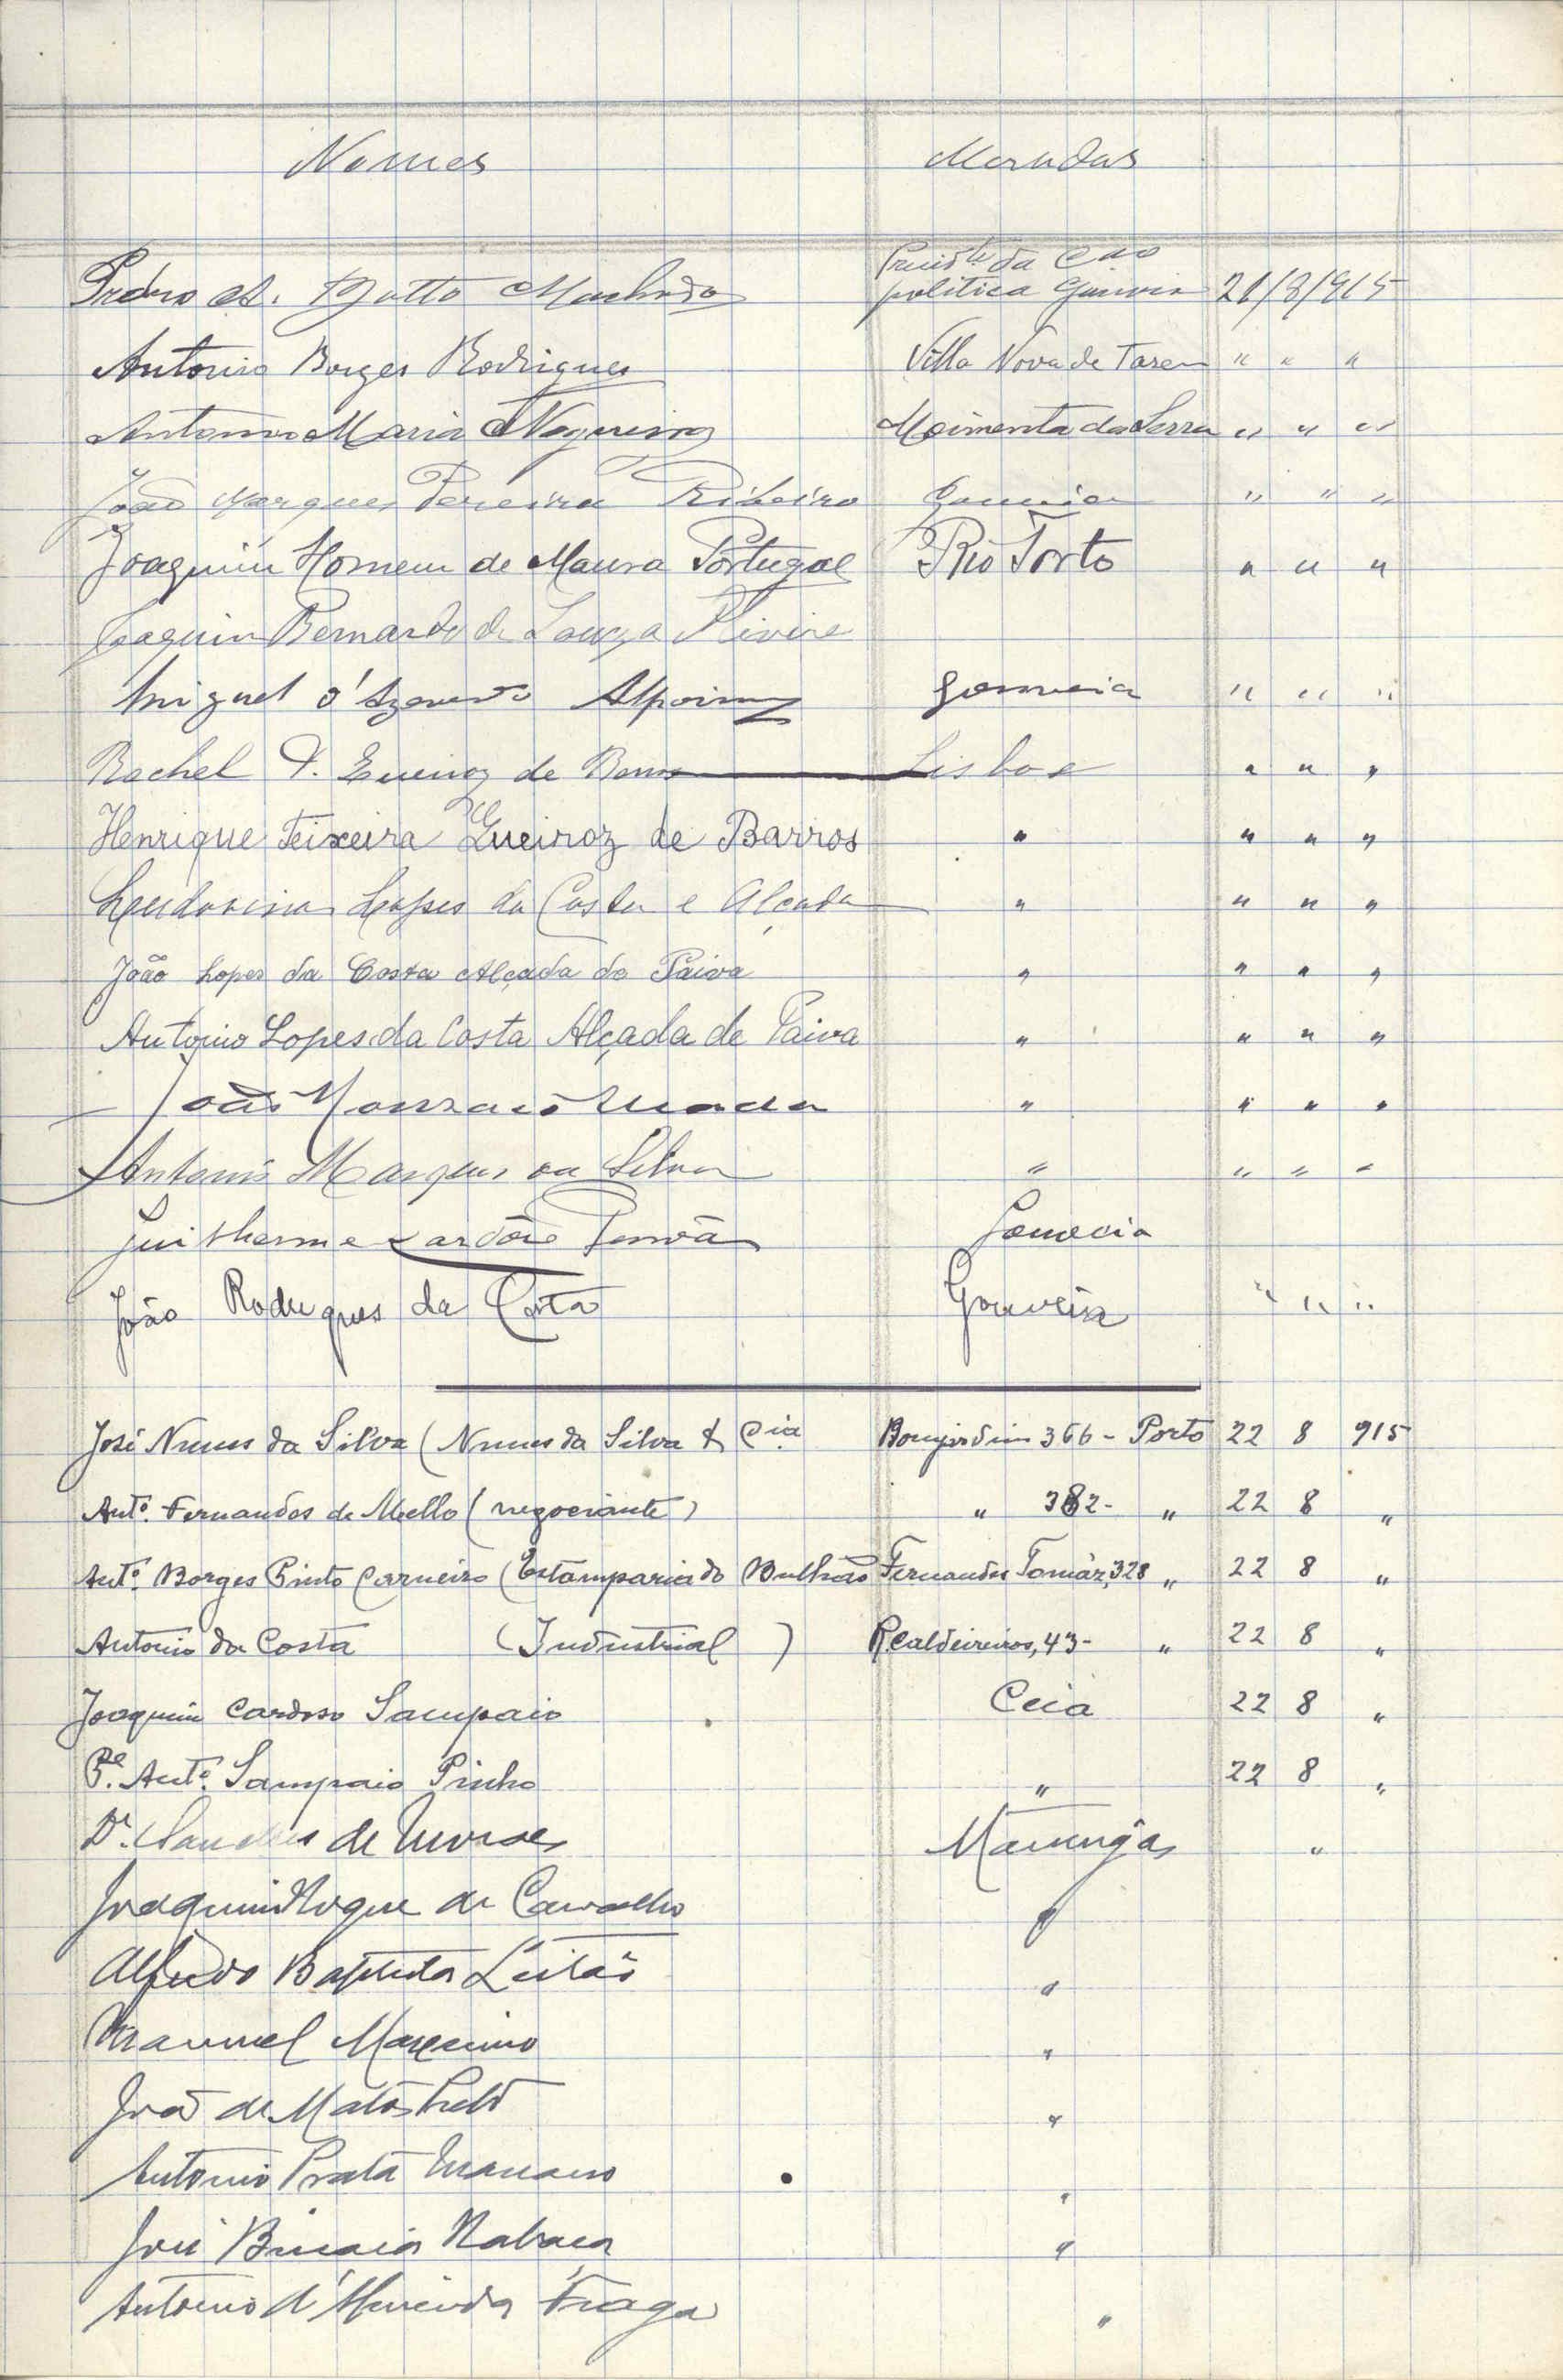 Nomes Moradas
Pedro A. Botto Machado Presid.te da C.ão
politica Gouveia 21/8/915
Antonio Borges Rodrigues Villa Nova de Tazem " " "
Antonio Maria Nogueira Moimenta da Serra " " "
João Marques Pereira Ribeiro Gouveia " " "
Joaquim Homem de Moura Portugal Rio Torto " " "
Joaquim Bernardo de Souza
Miguel d'Azevedo Alpoim Gouveia " " "
Rachel T. Queiroz de Barros Lisboa " " "
Henrique Teixeira Queiroz de Barros " " " "
Ludovina Lopes da Costa e Alçada " " " "
João Lopes da Costa Alçada de Paiva " " " "
Antonio Lopes da Costa Alçada de Paiva " " " "
João " " " "
Antonio Marques da Silva " " " "
Guilherme Gouveia
João Rodrigues da Costa Gouveia " " "
José Nunes da Silva (Nunes da Silva & Cia Bomjardim 366 - Porto 22 8 915
Antº. Fernandes de Mello (negociante) " 382 - " 22 8 "
Antº. Borges Pinto Carneiro (Estamparia do Bulhão Fernandes Tomáz, 328 " 22 8 "
Antonio da Costa (Industrial) R. Caldeireiros, 43 - " 22 8 "
Joaquim Cardoso Sampaio Ceia 22 8 "
P.e Antº. Sampaio Pinho " 22 8 "
Dr. de Moraes Manteigas "
Joaquim Roque de Carvalho "
Alfredo Baptista Leitão "
Manuel Maximino "
João de Matos "
Antonio Prata "
José Rabaça "
Antonio d'Almeida Fraga "